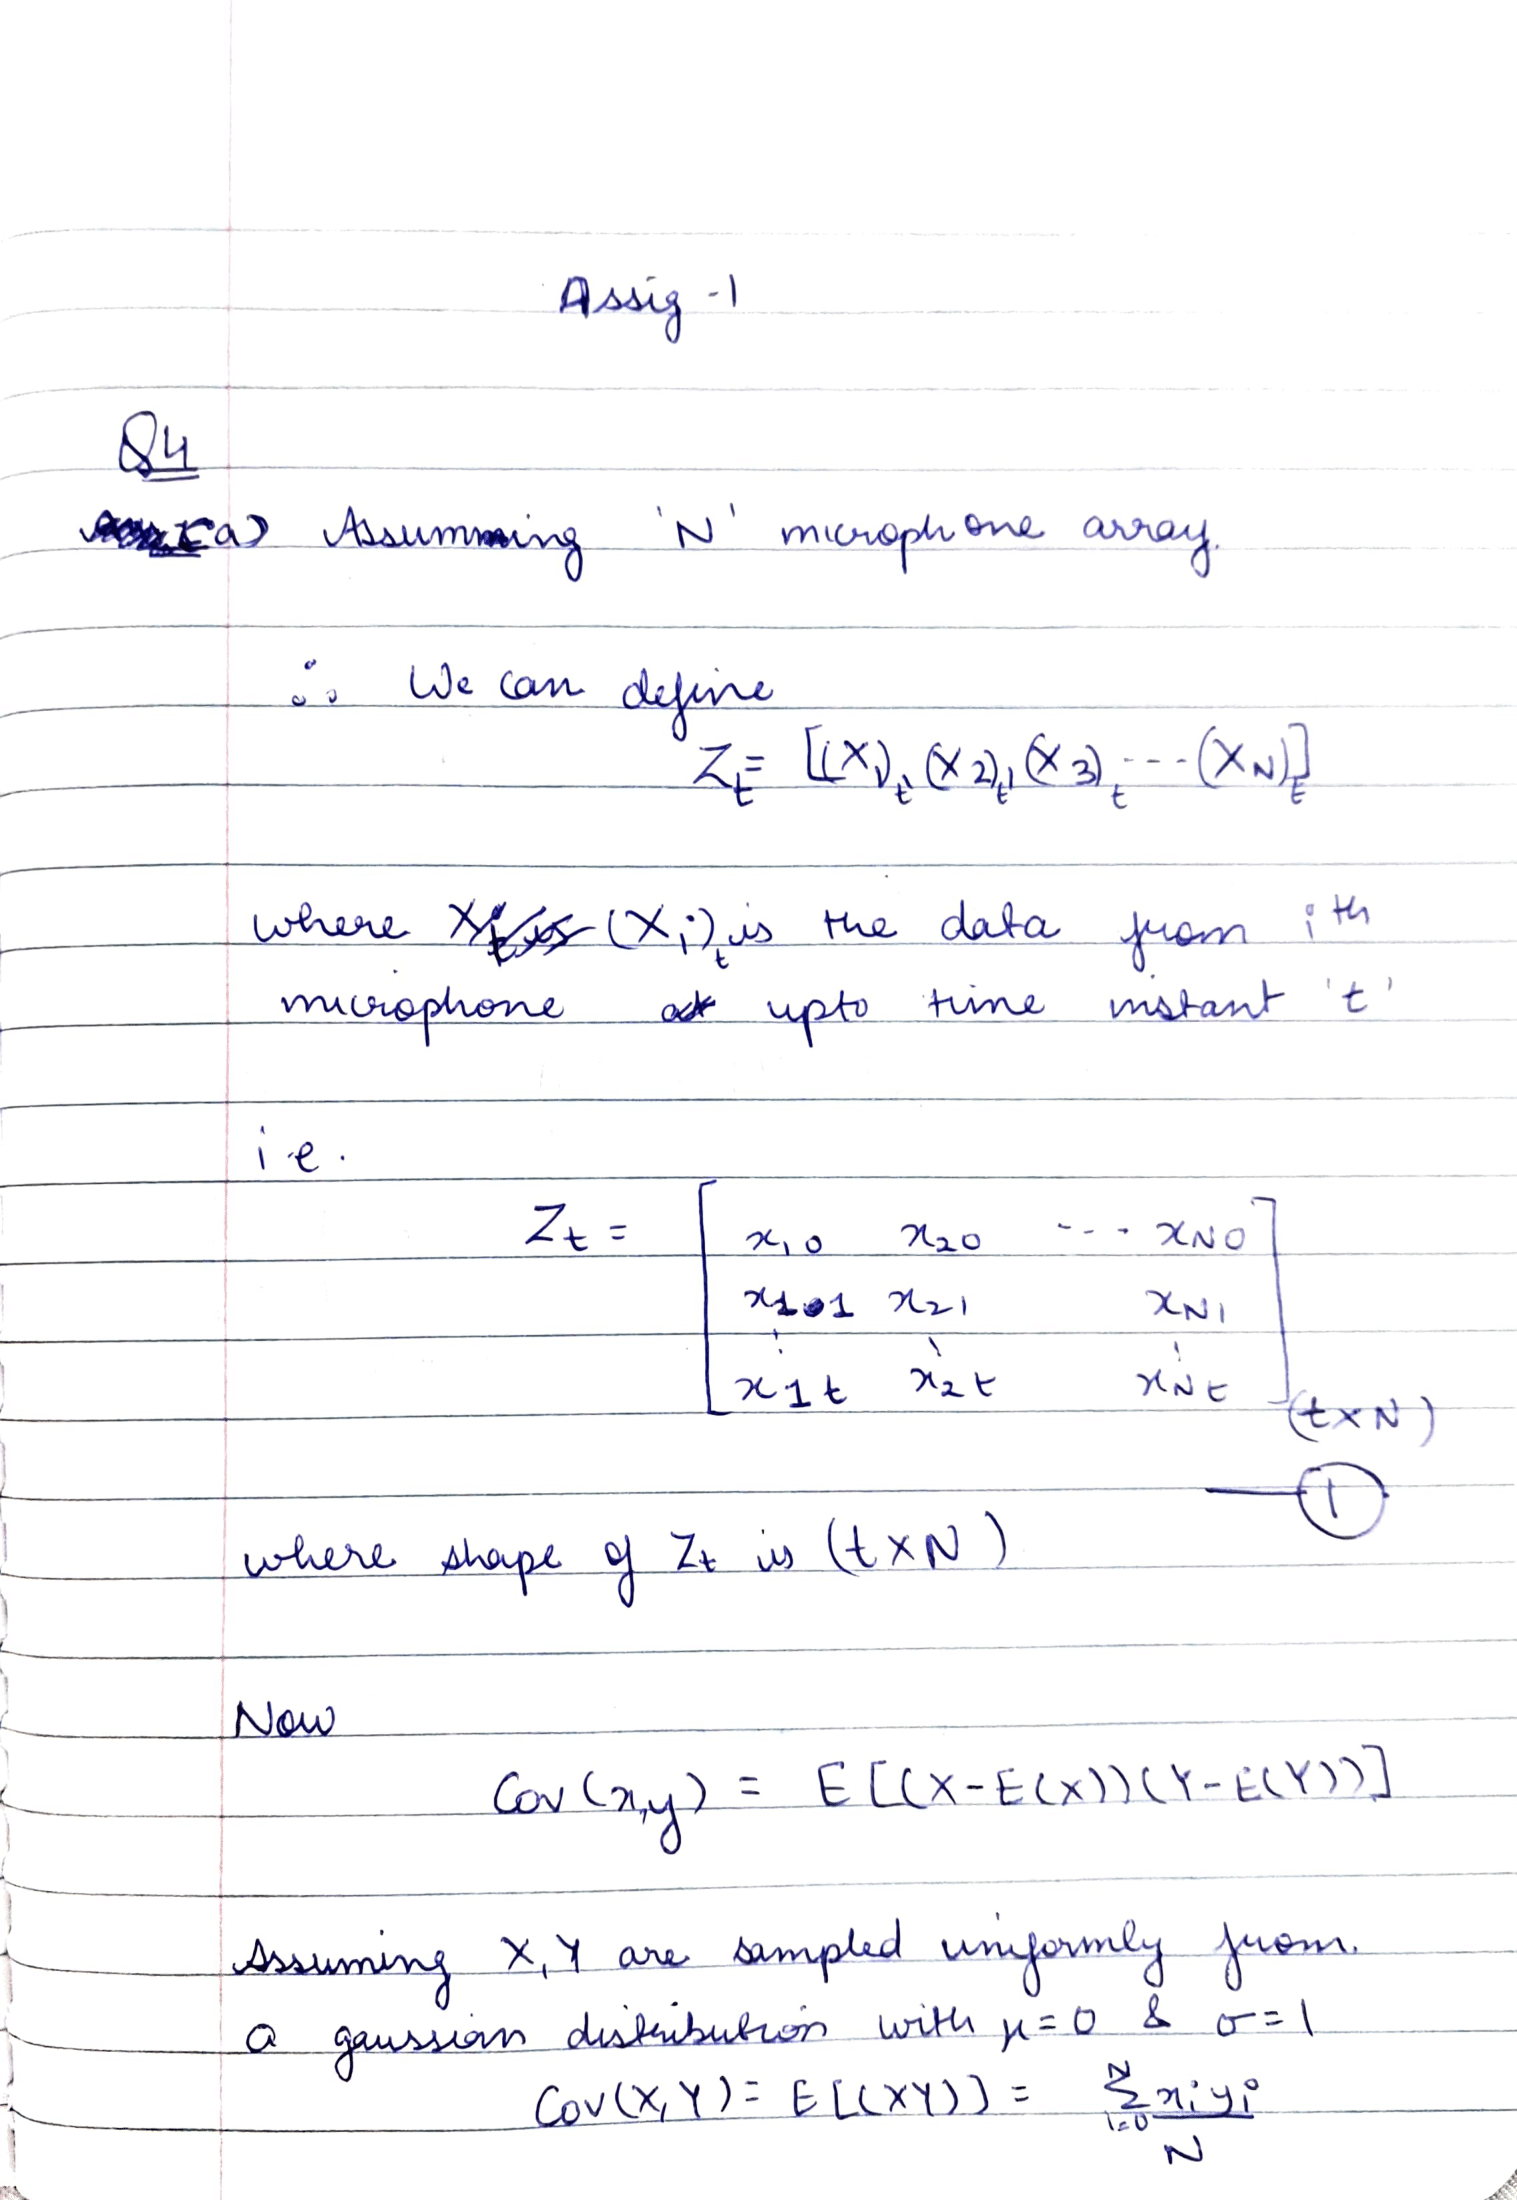 Assig -1
Q4
a) Assumming 'N' microphone array.
∴ We can define
Z_t = [(X_1)_t, (X_2)_t, (X_3)_t ---- (X_N)_t]
where (X_i)_t is the data from ith
microphone upto time instant 't'
i.e.
Z_t = [ x_10 x_20 ---- x_N0
x_11 x_21 x_N1
⋮ ⋮ ⋮
x_1t x_2t x_Nt ]_(t×N)
—①
where shape of Z_t is (t×N)
Now
Cov(x,y) = E[(X-E(X))(Y-E(Y))]
Assuming X, Y are sampled uniformly from
a gaussian distribution with μ=0 & σ=1
Cov(X,Y) = E[(XY)] = Σ_{i=0}^{N} x_i y_i / N